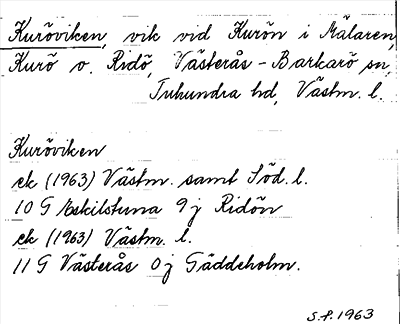 Kuröviken, vik vid Kurön i Mälaren,
Kurö o. Ridö, Västerås-Barkarö sn,
Tuhundra hd, Västm. l.
Kuröviken
ek (1963) Västm. samt Söd. l.
10 G Eskilstuna 9 j Ridön
ek (1963) Västm. l.
11 G Västerås 0 j Gäddeholm.
S.P. 1963